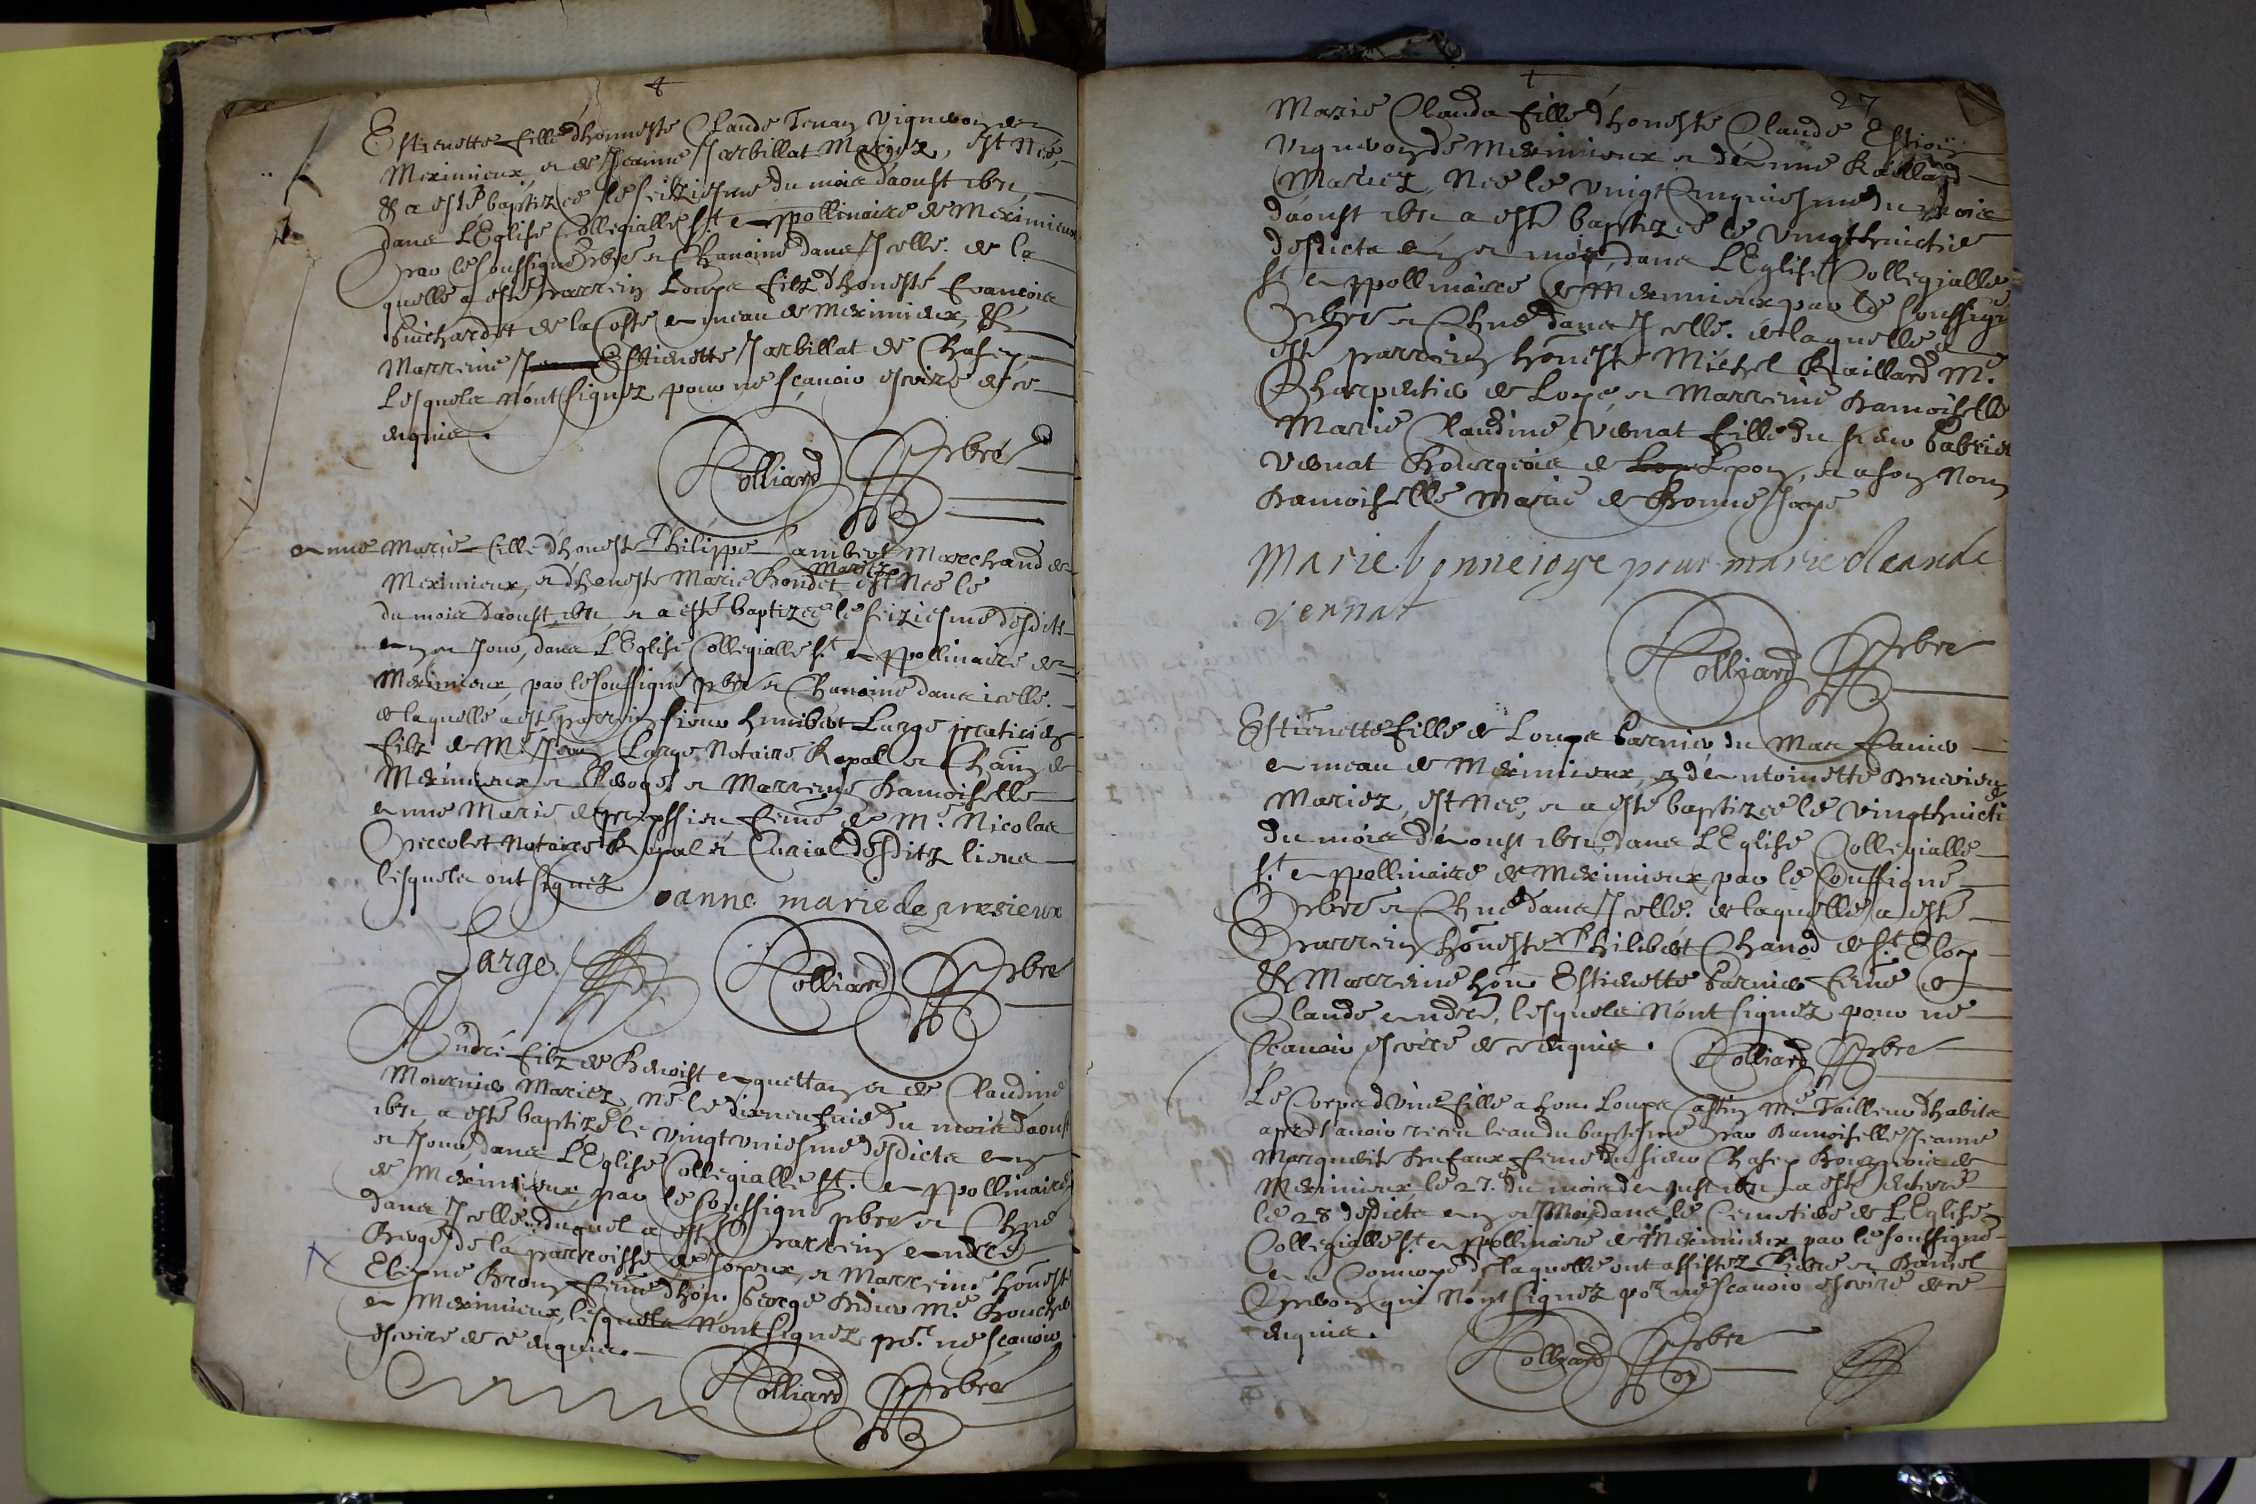 Estienette fille d'honneste Claude Tenay vigneron de
Meximieux, et de Jeanne Jarbillat Mariez, est Née,
& a esté baptizée le seiziesme du mois daoust
dans L'Eglise Collegialle St Appollinaire de Meximieux
Par le soussigné Pbre et Chanoine dans Jcelle. de la
quelle a esté parrein Louys filz d'honesté Francois
Guichardet de la Coste Ameau de Meximieux, &
Marreine Estienette Jarbillat de Chasey
Lesquels n'ont signez pour ne sçavoir escrire de ce
enquis.
Rolliard Pbre
Anne Marie fille d'honest Philippe Lambert Marchand de
Meximieux, et d'honeste Marie Bondet Mariez est Née le
du mois daoust et a esté baptizée le seiziesme desdits
an et jour, dans L'Eglise Collegialle St Appollinaire de
Meximieux, par le soussigné pbre et Chanoine dans icelle.
de laquelle a esté parrein sieur humbert Large praticien
filz de Me Jean Large Notaire Royal et Chain de
Meximieux et Peroges et Marreine Damoiselle
Anne Marie de femme de Me Nicolas
Piccolet Notaire Royal et Curial desditz lieux
lesquels ont signez
anne marie de presieux
Large
Rolliard Pbre
André filz de Benoist Anquettan et de Claudine
Mournier Mariez, né le dixneufvie du mois daoust
a esté baptizé le vingtuniesme desdicts an
et jour, dans L'Eglise Collegialle St. Appollinaire
de Meximieux par le soussigné pbre et Chne
dans Jcelle. duquel a esté Parrein André
de la parroisse de Joyeux, et Marreine honeste
femme d'hon. George Didier Me Boucher
A Meximieux, lesquels n'ont signez pr. ne scavoir
escrire de ce enquis.
Rolliard Pbre
27
Marie Clauda fille d'honesté Claude
vigneron de Meximieux et d'Anne Raillard
Mariez, Née le vingt Cinquiesme du mois
daoust a esté baptizée le vingthuictie
desdicts an et mois, dans L'Eglise Collegialle
St Appollinaire de Meximieux par le soussigné
Pbre et Chne dans Jcelle. de laquelle a
esté parrein honeste Michel Raillard Me
Charpentier de Loye, et Marreine Damoiselle
Marie Claudine Vernat fille du sieur Gabriel
Vernat Bourgeois de Lyon, et a son Nom
Damoiselle Marie de Bonne Joye
Marie bonne ioye pour marie claude
vernat
Rolliard Pbre
Estienette fille de Louys Garnier du Mas
Ameau de Meximieux, et d'Antoinette
Mariez, est Née, et a esté baptizée le vingthuicti
du mois d'Aoust dans L'Eglise Collegialle
St Appollinaire de Meximieux par le soussigné
Pbre et Chne dans Jcelle. de laquelle a esté
Parrein honeste Philibert Chanod de St Eloy
& Marreine hon. Estienette Garnier femme de
Claude André, lesquels n'ont signez pour ne
scavoir escrire de ce enquis. Rolliard Pbre
Le Corps d'une fille a hon. Louys Me Tailleur d'habits
apres avoir receu leau du baptesme Par Damoiselle Jeanne
Marguerite Dufaux femme du sieur Chasey Bourgeois de
Meximieux, le 27. du mois d'Aust a esté enterré
le 28 desdicts an et Mois dans le Cemetiere de L'Eglise
Collegialle St Appollinaire de Meximieux par le soussigné
Au Convoye de laquelle ont assistez Pierre et Daniel
qui n'ont signez por ne scavoir escrire de ce
enquis.
Rolliard Pbre